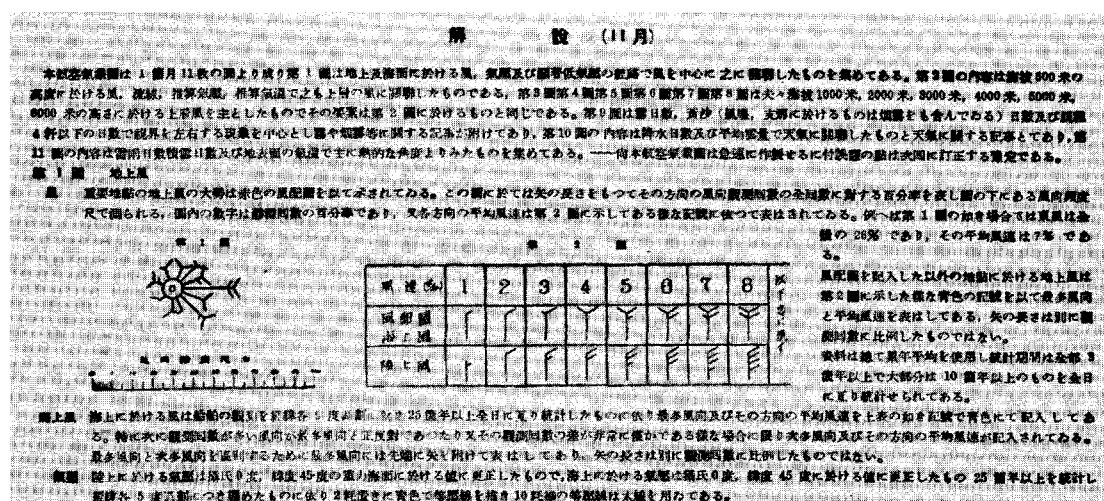 解 説 (11月)
本航空氣象圖は 1 個月11枚の圖より成り第 1 圖は地上及海面に於ける風, 氣壓及び顯著低氣壓の經路で風を中心に之に關聯したものを集めてある。第2圖の内容は海拔500米の
高度に於ける風, 流線, 指算氣壓, 指算氣溫で之も上層の風に關聯したものである, 第3圖第4圖第5圖第6圖第7圖第8圖は夫々海拔1000米, 2000米, 3000米, 4000米, 5000米,
6000 米の高さに於ける上層風を主としたものでその要素は第 2 圖に於けるものと同じである。第9圖は霧日數, 黄沙 日數及び視程
4粁以下の日數で視界を左右する現象を中心とし霧や煙霧等に關する記事が附けてあり, 第10圖の内容は降水日數及び平均雲量で天氣に關聯したものと天氣に關する記事とであり, 第
11 圖の内容は雷雨日數積雪日數及び地表面の氣溫で主に熱的な角度よりみたものを集めてある。――尚本航空氣象圖は急速に作製せるに付誤謬の點は次回に訂正する豫定である。
第 1 圖 地上風
風 重要地點の地上風の大勢は赤色の風配圖を以て示されてゐる。この圖に於ては矢の長さをもつてその方向の風向觀測回數の全回數に對する百分率を表し圖の下にある風向頻度
尺で圖られる, 圓内の數字は靜穩回數の百分率であり, 又各方向の平均風速は第 2 圖に示してある樣な記號に依つて表はされてゐる。例へば第 1 圖の如き場合では東風は全
體の 26% であり, その平均風速は7% であ
る。
風配圖を記入した以外の地點に於ける地上風は
第2圖に示した樣な青色の記號を以て最多風向
と平均風速を表はしてある, 矢の長さは別に觀
測回數に比例したものではない。
資料は總て累年平均を使用し統計期間は全部 3
箇年以上で大部分は 10 箇年以上のものを全日
に亙り統計せられてある。
第 1 圖
風向頻度尺
第 2 圖
風速 1 2 3 4 5 6 7 8
風配圖
海上風
陸上風
海上風 海上に於ける風は船舶の觀測を經緯各 5 度 25 箇年以上全日に亙り統計したものに依り最多風向及びその方向の平均風速を上表の如き記號で青色にて記入してあ
る。特に次に觀測回數が多い風向が最多風向と正反對であつたり又その觀測回數の差が非常に僅かである樣な場合に限り次多風向及びその方向の平均風速が記入されてゐる。
最多風向と次多風向を區別するために最多風向には先端に矢を附けて表はしてあり, 矢の長さは別に觀測回數に比例したものではない。
氣壓 陸上に於ける氣壓は攝氏0度, 緯度45度の重力海面に於ける値に更正したもので, 海上に於ける氣壓は攝氏0度, 緯度 45 度に於ける値に更正したもの 25 箇年以上を統計し
經緯各 5 度 につき纏めたものに依り 2 粍置きに青色で等壓線を描き 10 粍線の等壓線は太線を用ゐてある。